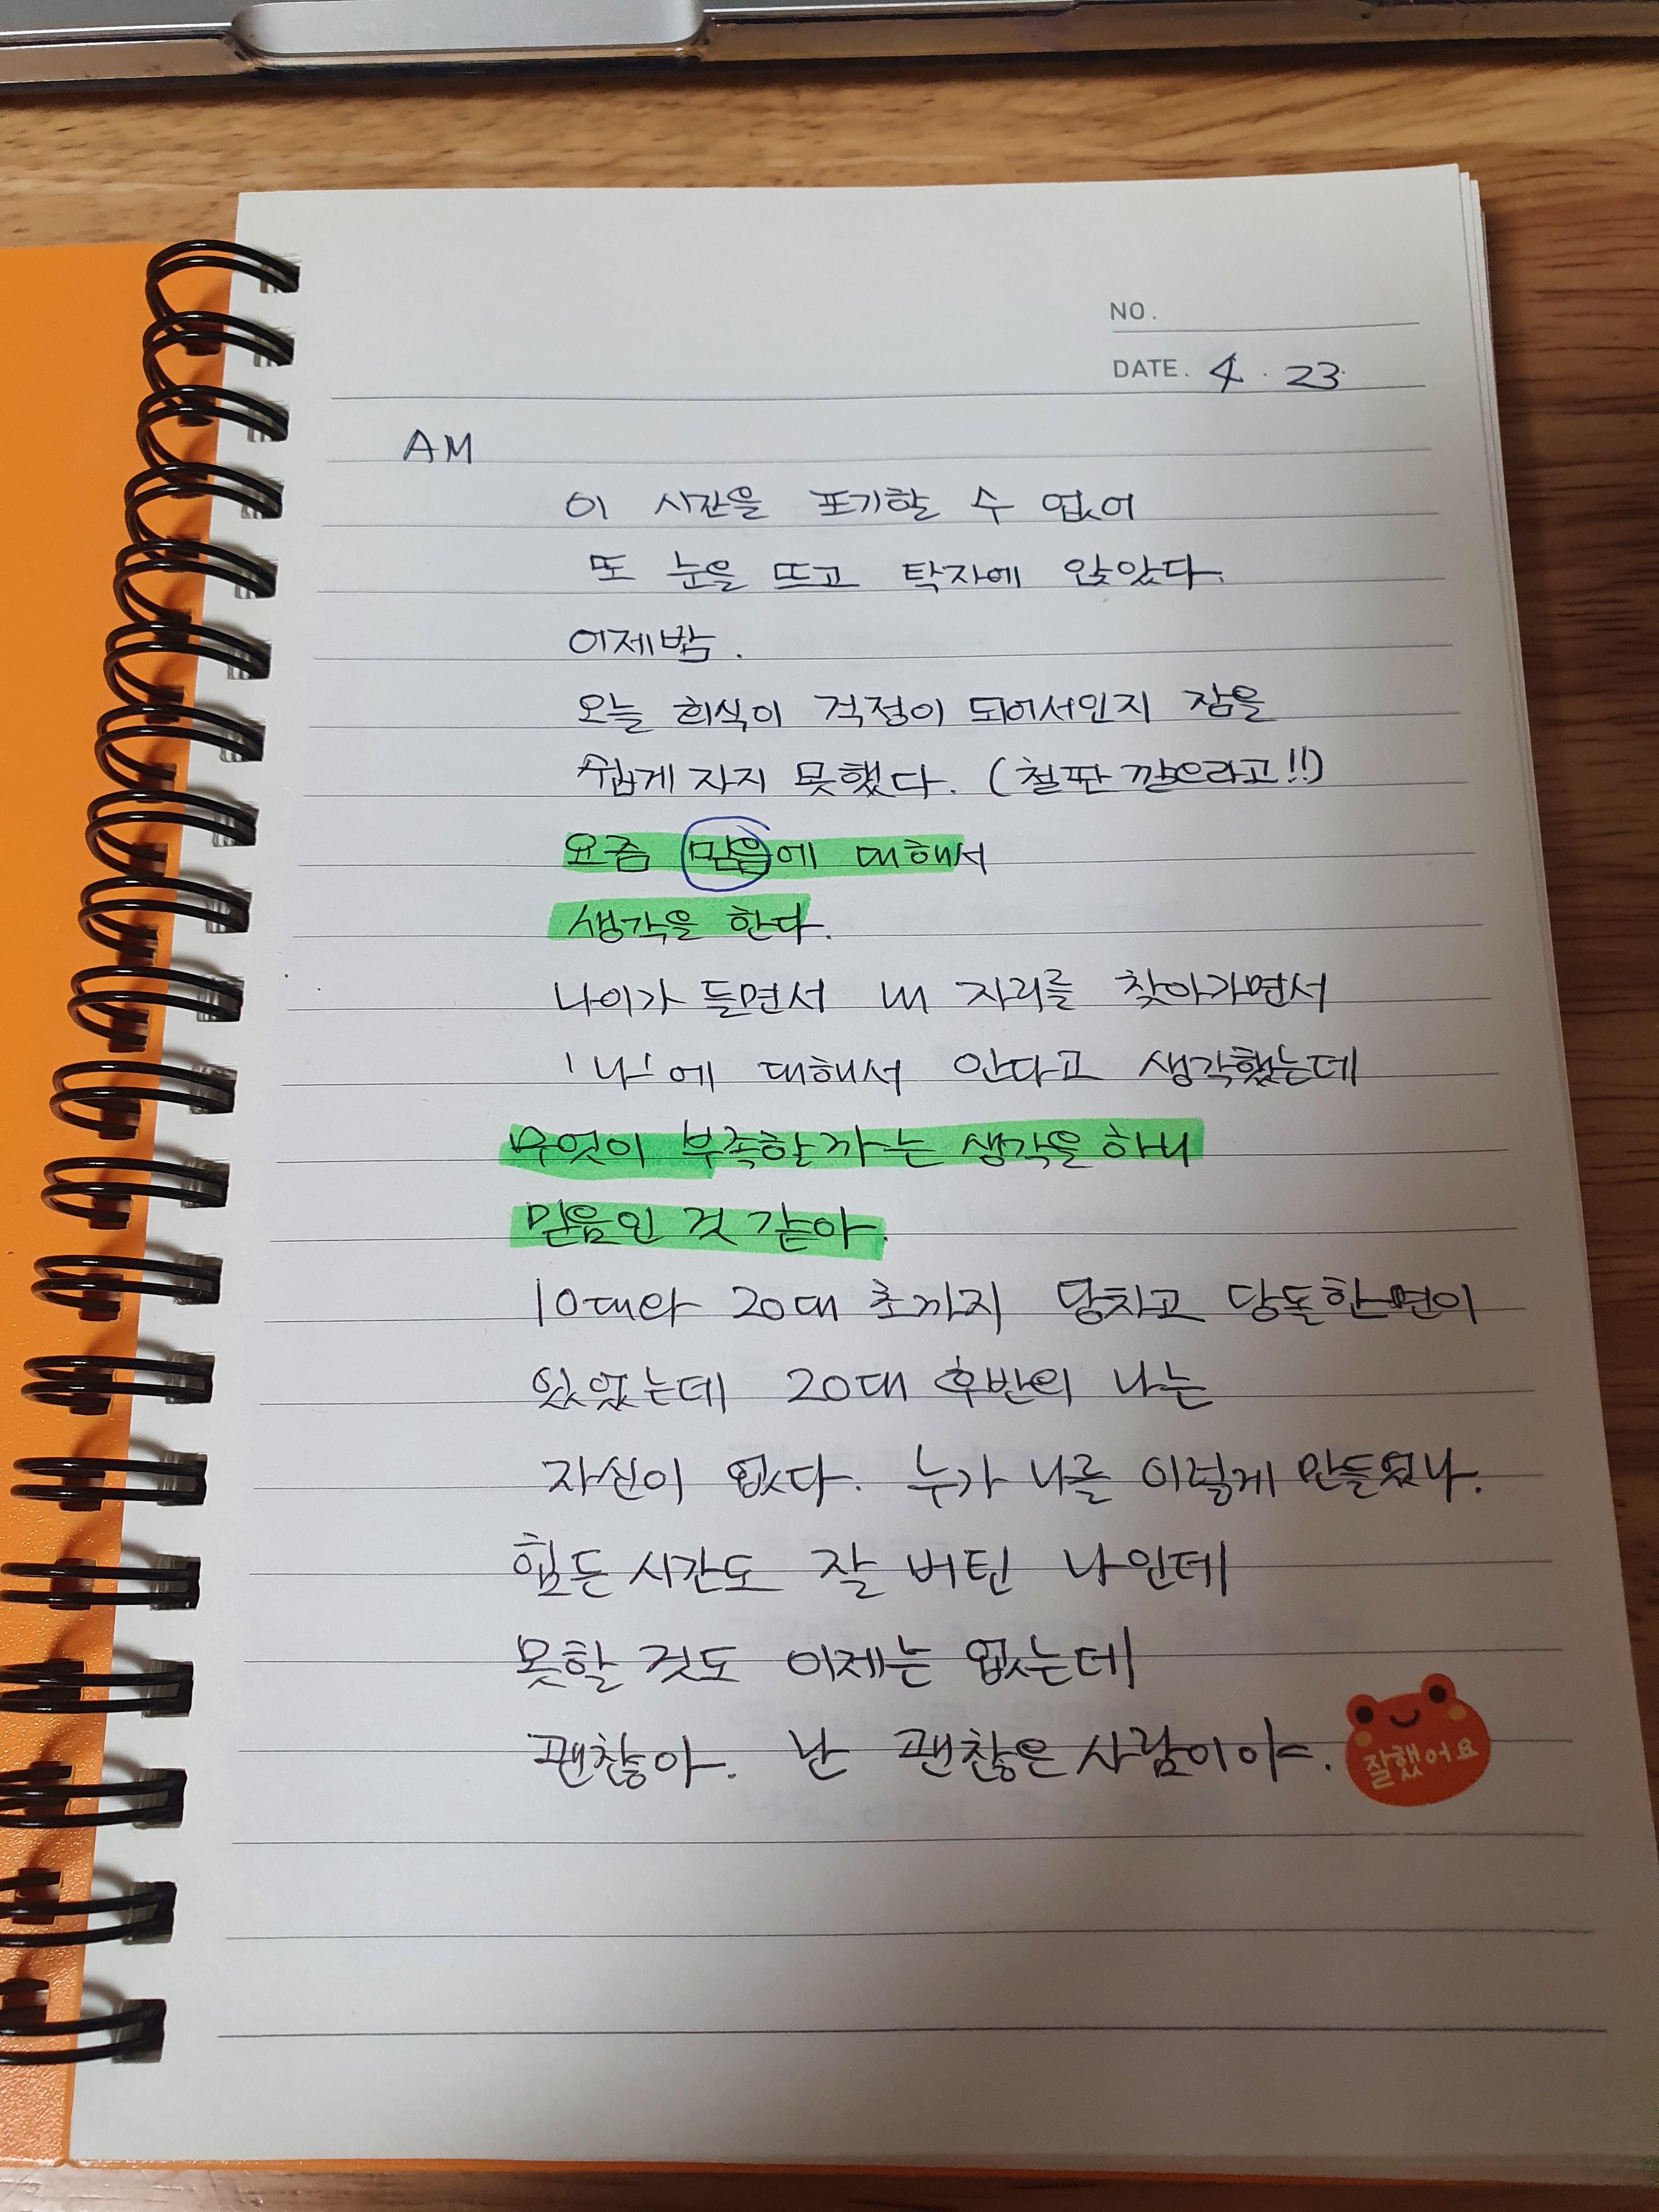 NO.
DATE. 4 . 23.
AM
이 시간을 포기할 수 없어
또 눈을 뜨고 탁자에 앉았다.
어제밤.
오늘 회식이 걱정이 되어서인지 잠을
쉽게 자지 못했다. (철판 깔으라고!!)
요즘 믿음에 대해서
생각을 한다.
나이가 들면서 내 자리를 찾아가면서
'나'에 대해서 안다고 생각했는데
무엇이 부족할까는 생각을 하니
믿음인 것 같아.
10대와 20대 초까지 당차고 당돌한면이
있었는데 20대 후반의 나는
자신이 없다. 누가 나를 이렇게 만들었나.
힘든 시간도 잘 버틴 나인데
못할 것도 이제는 없는데
괜찮아. 난 괜찮은 사람이야.
잘했어요